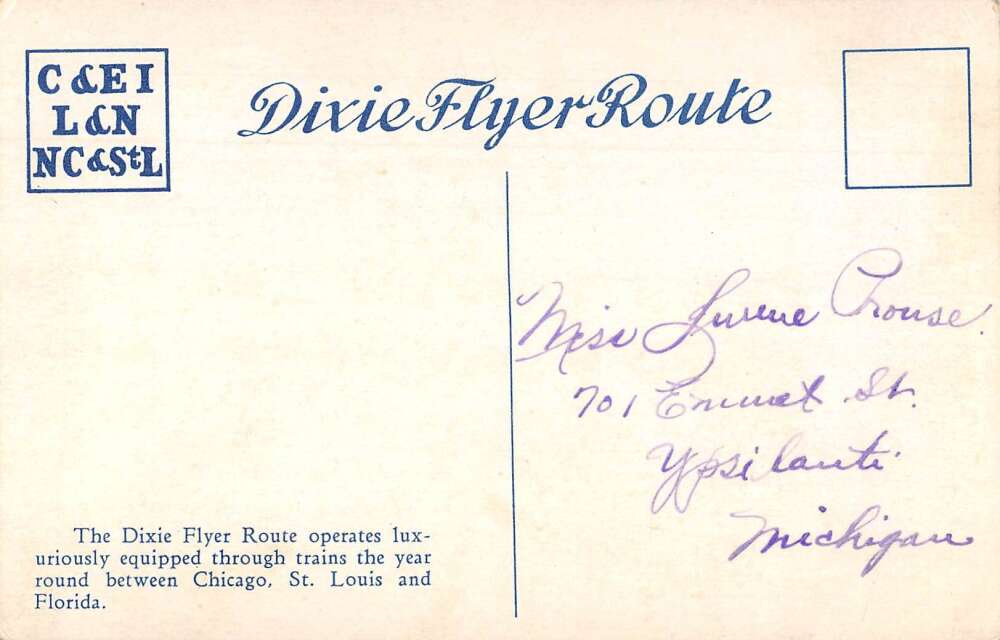 C & E I
L & N
NC & StL
Dixie Flyer Route
Miss Prouse.
701 Emmet St.
Ypsilanti
Michigan
The Dixie Flyer Route operates lux-
uriously equipped through trains the year
round between Chicago, St. Louis and
Florida.